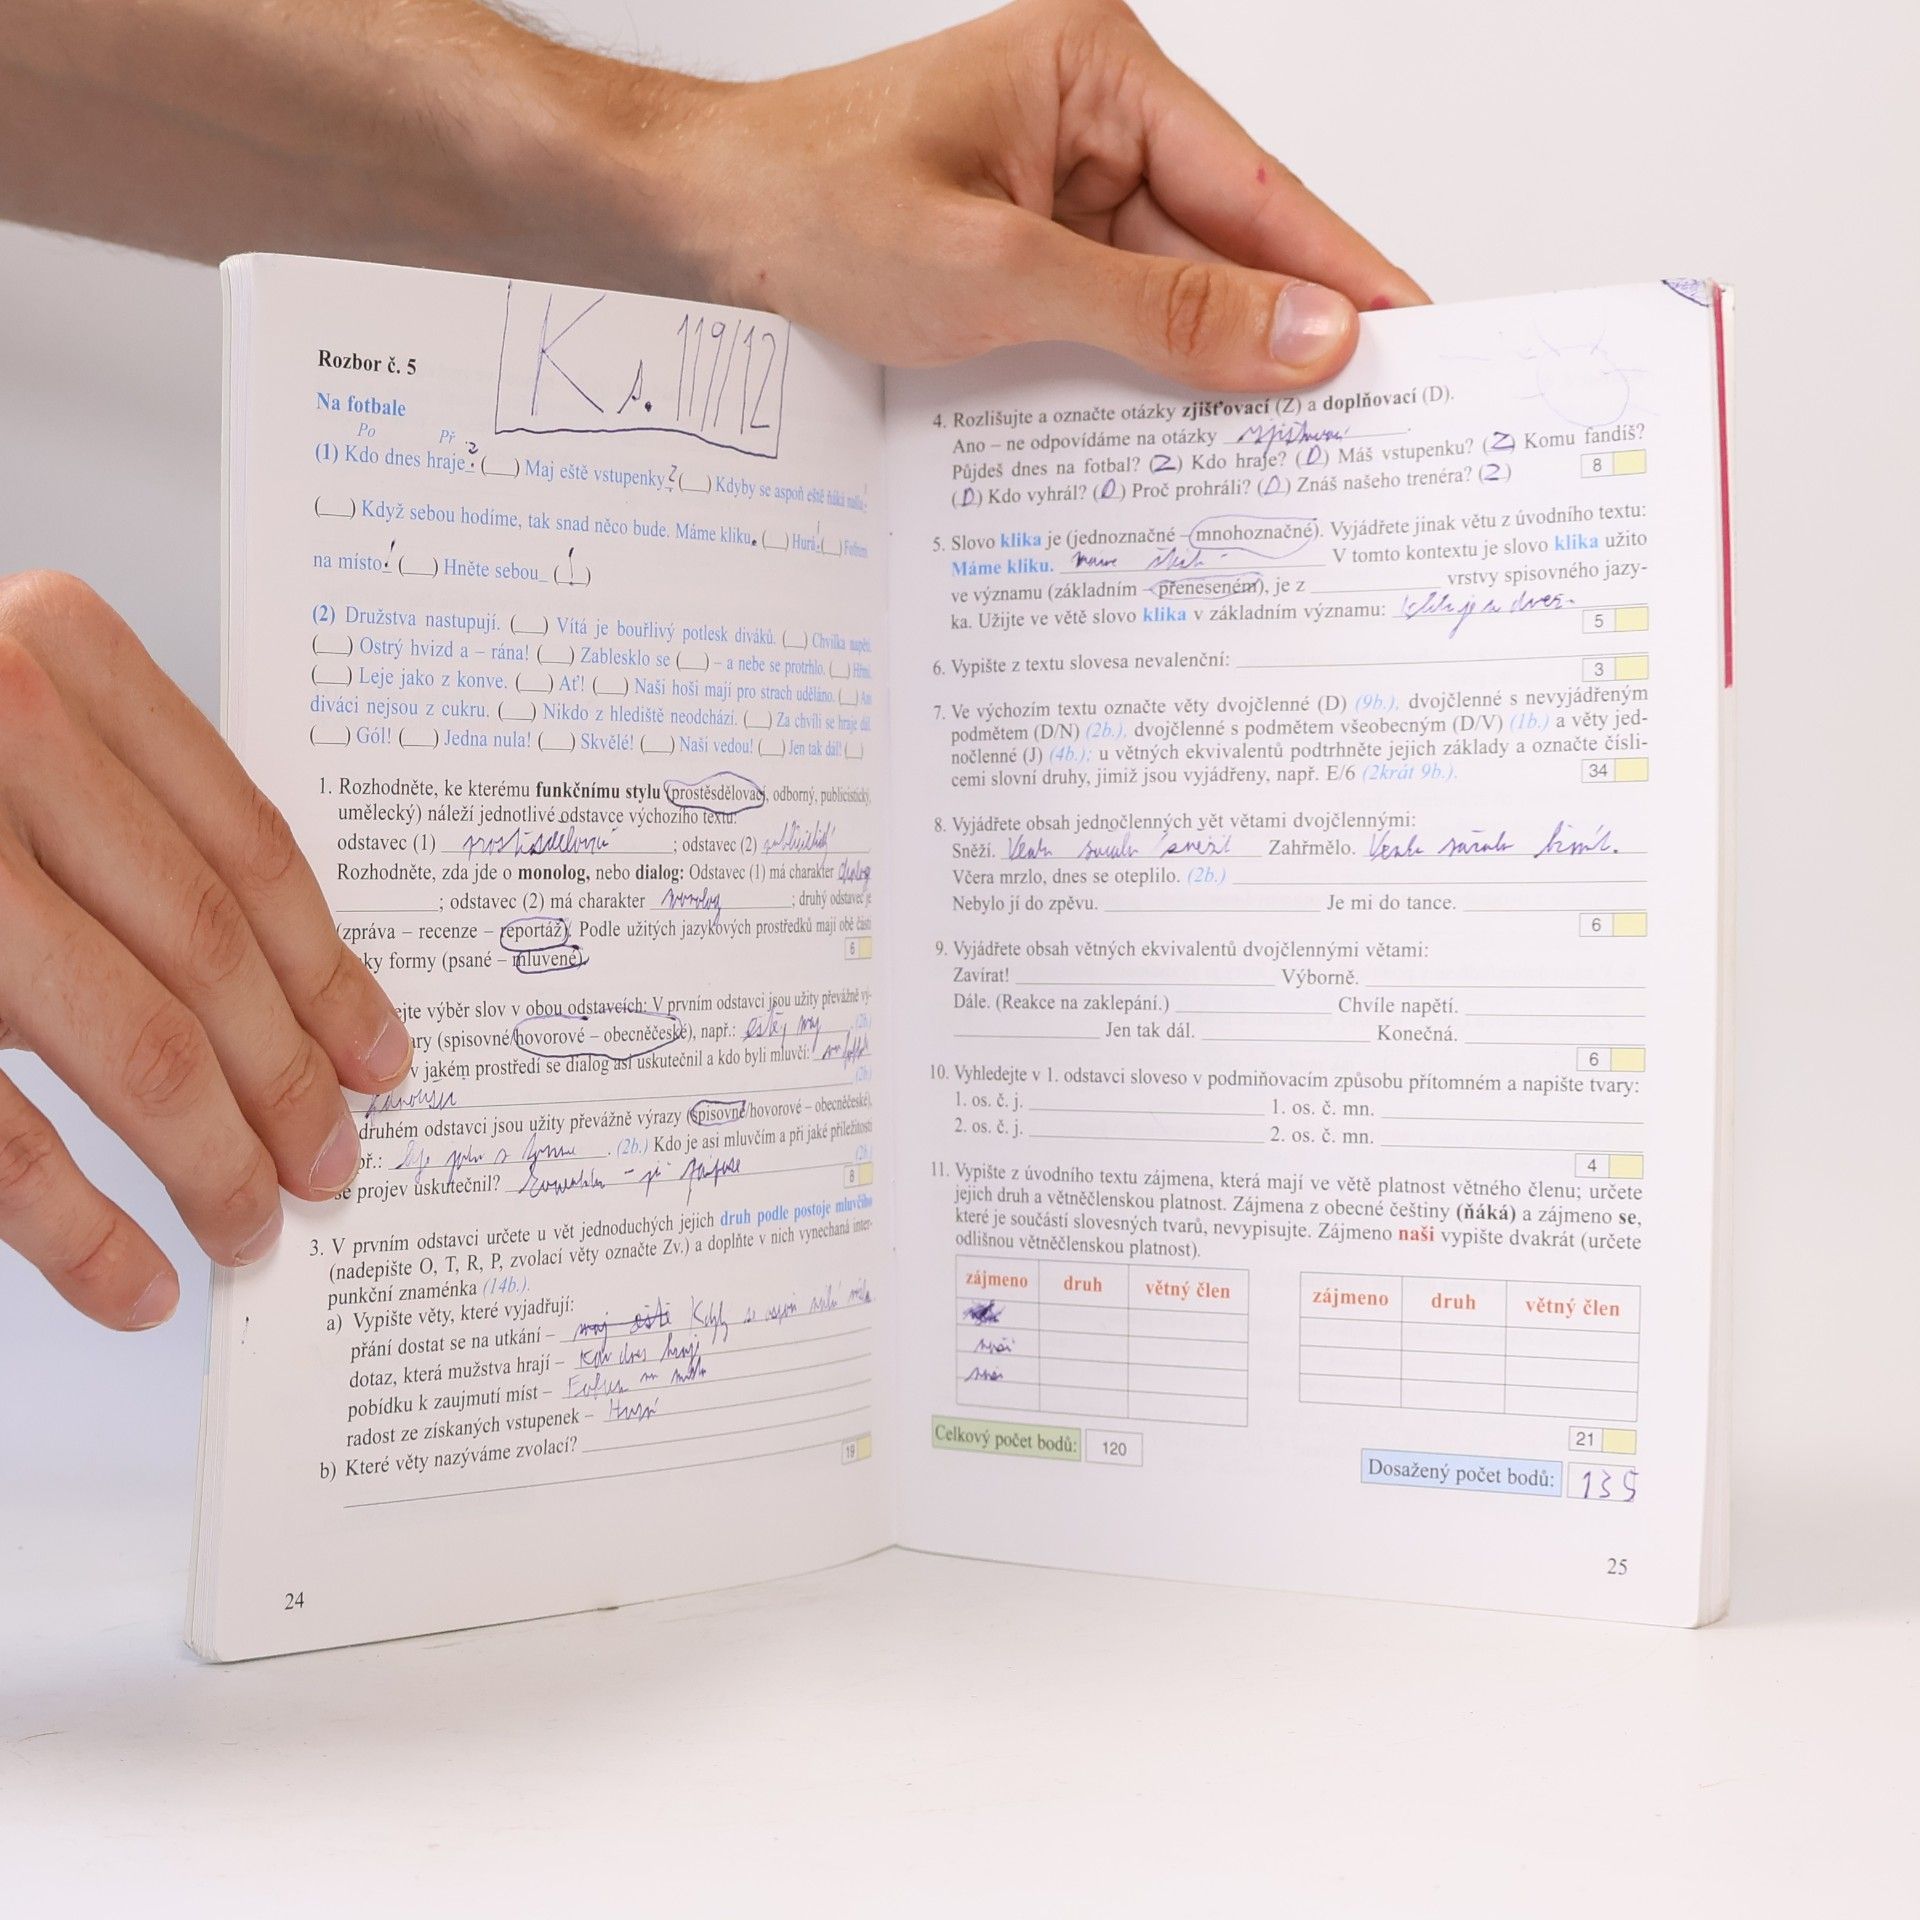 K s. 119/12
Rozbor č. 5
Na fotbale
Po Př
(1) Kdo dnes hraje ? (__) Maj eště vstupenky ? (__) Kdyby se aspoň eště ňáká našla !
(__) Když sebou hodíme, tak snad něco bude. Máme kliku. (__) Hurá ! (__) Fofrem
na místo ! (__) Hněte sebou_ (!)
(2) Družstva nastupují. (__) Vítá je bouřlivý potlesk diváků. (__) Chvilka napětí.
(__) Ostrý hvizd a – rána! (__) Zablesklo se (__) – a nebe se protrhlo. (__) Hřmí.
(__) Leje jako z konve. (__) Ať! (__) Naši hoši mají pro strach uděláno. (__) Ani
diváci nejsou z cukru. (__) Nikdo z hlediště neodchází. (__) Za chvíli se hraje dál.
(__) Gól! (__) Jedna nula! (__) Skvělé! (__) Naši vedou! (__) Jen tak dál! (__)
1. Rozhodněte, ke kterému funkčnímu stylu (prostěsdělovací, odborný, publicistický,
umělecký) náleží jednotlivé odstavce výchozího textu:
odstavec (1) prostěsdělovací ; odstavec (2) publicistický
Rozhodněte, zda jde o monolog, nebo dialog: Odstavec (1) má charakter dialog
; odstavec (2) má charakter monolog ; druhý odstavec je
(zpráva – recenze – reportáž). Podle užitých jazykových prostředků mají obě části
ky formy (psané – mluvené). 6
ejte výběr slov v obou odstavcích: V prvním odstavci jsou užity převážně vý-
ary (spisovné/hovorové – obecněčeské), např.: eště, maj . (2b.)
v jakém prostředí se dialog asi uskutečnil a kdo byli mluvčí:
(2b.)
druhém odstavci jsou užity převážně výrazy (spisovné/hovorové – obecněčeské),
př.: . (2b.) Kdo je asi mluvčím a při jaké příležitosti
se projev uskutečnil? (2b.) 8
3. V prvním odstavci určete u vět jednoduchých jejich druh podle postoje mluvčího
(nadepište O, T, R, P, zvolací věty označte Zv.) a doplňte v nich vynechaná inter-
punkční znaménka (14b.).
a) Vypište věty, které vyjadřují:
přání dostat se na utkání – maj eště Kdyby se aspoň
dotaz, která mužstva hrají – Kdo dnes hraje
pobídku k zaujmutí míst – Fofrem na místo
radost ze získaných vstupenek – Hurá
b) Které věty nazýváme zvolací?
19
24
4. Rozlišujte a označte otázky zjišťovací (Z) a doplňovací (D).
Ano – ne odpovídáme na otázky zjišťovací .
Půjdeš dnes na fotbal? (Z) Kdo hraje? (D) Máš vstupenku? (Z) Komu fandíš?
(D) Kdo vyhrál? (D) Proč prohráli? (D) Znáš našeho trenéra? (Z) 8
5. Slovo klika je (jednoznačné – mnohoznačné). Vyjádřete jinak větu z úvodního textu:
Máme kliku. máme štěstí V tomto kontextu je slovo klika užito
ve významu (základním – přeneseném), je z vrstvy spisovného jazy-
ka. Užijte ve větě slovo klika v základním významu: klika je u dveří.
5
6. Vypište z textu slovesa nevalenční:
3
7. Ve výchozím textu označte věty dvojčlenné (D) (9b.), dvojčlenné s nevyjádřeným
podmětem (D/N) (2b.), dvojčlenné s podmětem všeobecným (D/V) (1b.) a věty jed-
nočlenné (J) (4b.); u větných ekvivalentů podtrhněte jejich základy a označte čísli-
cemi slovní druhy, jimiž jsou vyjádřeny, např. E/6 (2krát 9b.). 34
8. Vyjádřete obsah jednočlenných vět větami dvojčlennými:
Sněží. Venku začalo sněžit Zahřmělo. Venku začalo hřmít.
Včera mrzlo, dnes se oteplilo. (2b.)
Nebylo jí do zpěvu. Je mi do tance.
6
9. Vyjádřete obsah větných ekvivalentů dvojčlennými větami:
Zavírat! Výborně.
Dále. (Reakce na zaklepání.) Chvíle napětí.
Jen tak dál. Konečná.
6
10. Vyhledejte v 1. odstavci sloveso v podmiňovacím způsobu přítomném a napište tvary:
1. os. č. j. 1. os. č. mn.
2. os. č. j. 2. os. č. mn.
4
11. Vypište z úvodního textu zájmena, která mají ve větě platnost větného členu; určete
jejich druh a větněčlenskou platnost. Zájmena z obecné češtiny (ňáká) a zájmeno se,
které je součástí slovesných tvarů, nevypisujte. Zájmeno naši vypište dvakrát (určete
odlišnou větněčlenskou platnost).
zájmeno druh větný člen zájmeno druh větný člen
naši
naši
21
Celkový počet bodů: 120
Dosažený počet bodů: 135
25